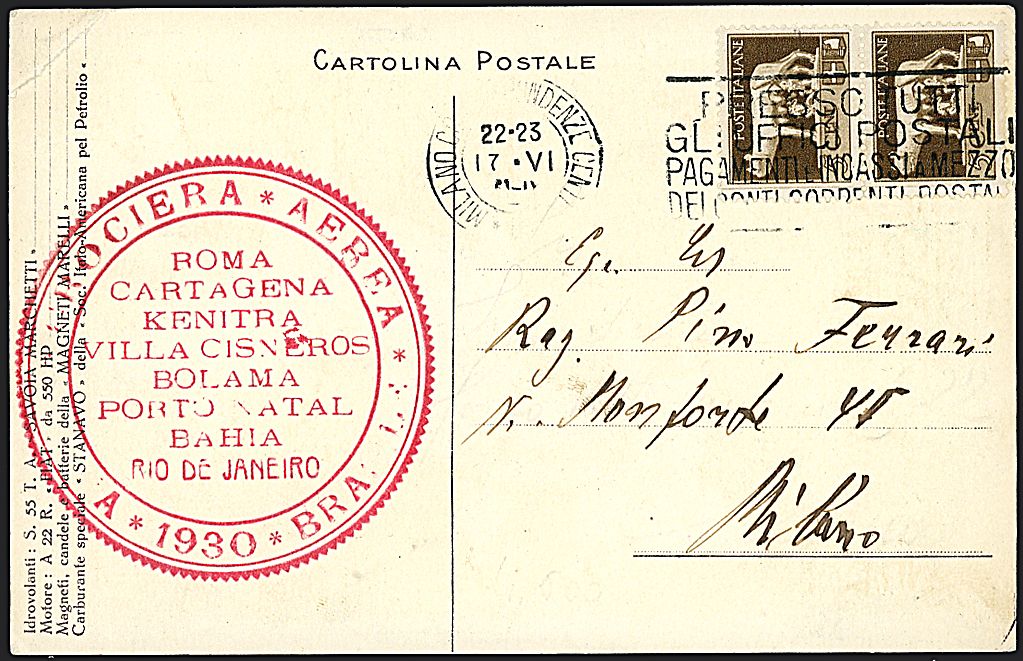 CARTOLINA POSTALE
POSTE ITALIANE
POSTE ITALIANE
CENT
22-23
17 · VI
PRESSO TUTTI
GLI UFFICI POSTALI
PAGAMENTI E INCASSI A MEZZO
DEI CONTI CORRENTI POSTALI
OCIERA * AEREA *
ROMA
CARTAGENA
KENITRA
VILLA CISNEROS
BOLAMA
PORTO NATAL
BAHIA
RIO DE JANEIRO
* 1930 *
Idrovolanti: S. 55 T. A. SAVOIA MARCHETTI »
Motore: A 22 R. « FIAT » da 550 HP
Magneti, candele e batterie della « MAGNETI MARELLI »
Carburante speciale « STANAVO » della « Soc. Italo-Americana pel Petrolio «
Rag. Pino Ferrari
V. Monforte 45
Milano